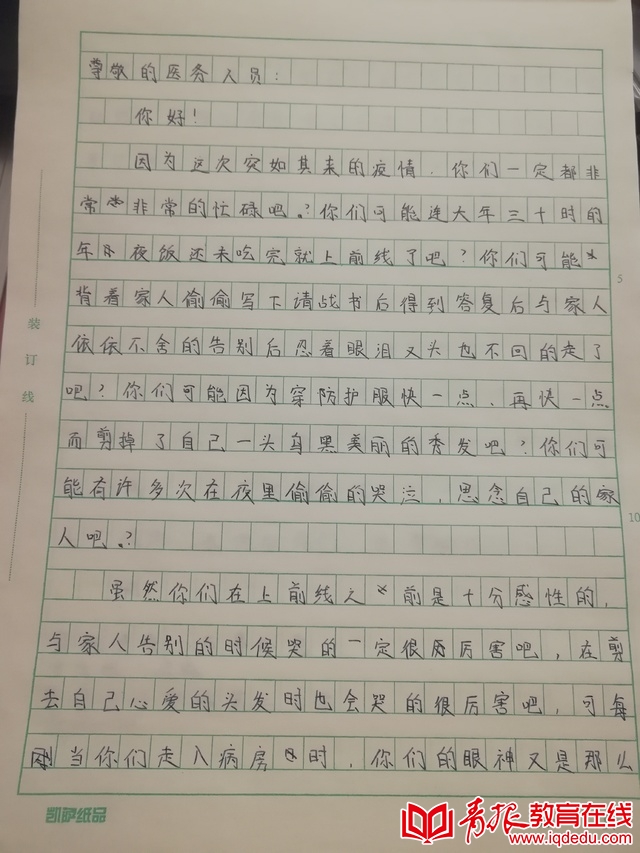 尊敬的医务人员：
你好！
因为这次突如其来的疫情，你们一定都非
常非常的忙碌吧？你们可能连大年三十时的
年夜饭还未吃完就上前线了吧？你们可能
背着家人偷偷写下请战书后得到答复后与家人
依依不舍的告别后忍着眼泪又头也不回的走了
吧？你们可能因为穿防护服快一点、再快一点
而剪掉了自己一头乌黑美丽的秀发吧？你们可
能有许多次在夜里偷偷的哭泣，思念自己的家
人吧？
虽然你们在上前线之前是十分感性的，
与家人告别的时候哭的一定很厉害吧，在剪
去自己心爱的头发时也会哭的很厉害吧，可每
当你们走入病房时，你们的眼神又是那么
装订线
5
10
凯萨纸品
青报教育在线
www.iqdedu.com